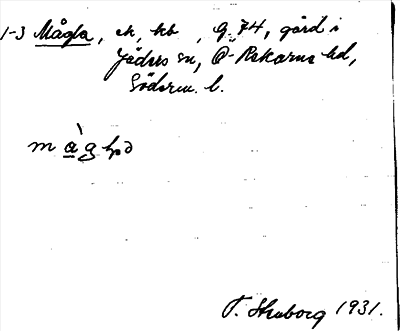 1-3 Mågla, ek, kb, G. 74, gård i
Jäders sn, Ö-Rekarne hd,
Söderm. l.
T. Skuborg 1931.